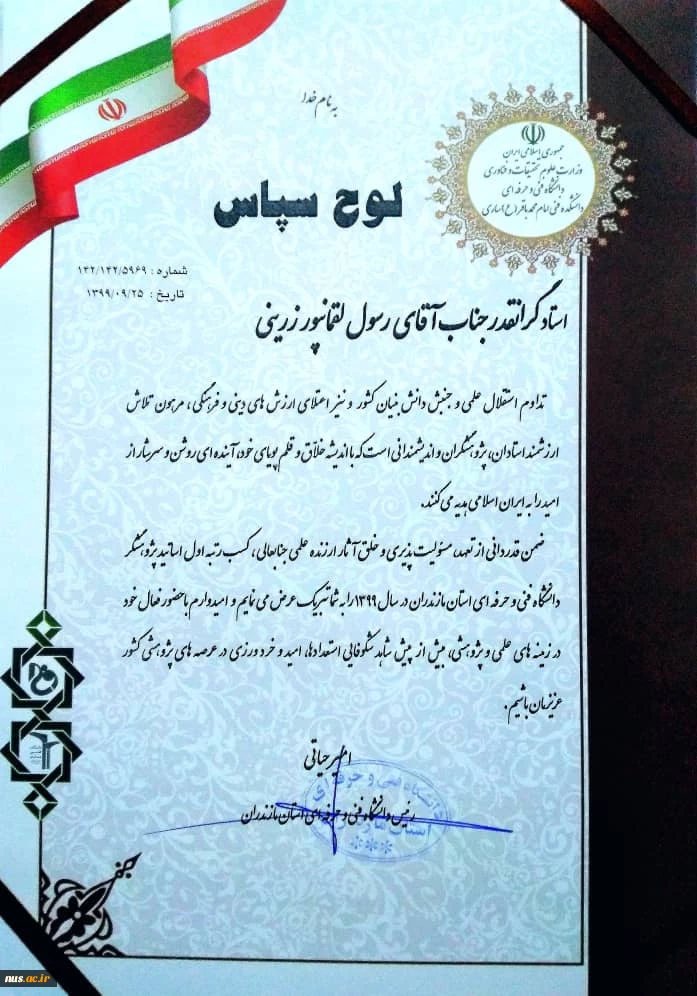 به نام خدا
جمهوری اسلامی ایران
وزارت علوم تحقیقات و فناوری
دانشگاه فنی و حرفه ای
دانشکده فنی امام محمد باقر (ع) ساری
لوح سپاس
شماره : ۱۴۲/۱۴۲/۵۹۶۹
تاریخ : ۱۳۹۹/۰۹/۲۵
استاد گرانقدر جناب آقای رسول لقمانپور زرینی
تداوم استقلال علمی و جنبش دانش بنیان کشور و نیز اعتلای ارزش های دینی و فرهنگی، مرهون تلاش
ارزشمند استادان، پژوهشگران و اندیشمندانی است که با اندیشه خلاّق و قلم پویای خود، آینده ای روشن و سرشار از
امید را به ایران اسلامی هدیه می کنند.
ضمن قدردانی از تعهد، مسئولیت پذیری و خلق آثار ارزنده علمی جنابعالی، کسب رتبه اول اساتید پژوهشگر
دانشگاه فنی و حرفه ای استان مازندران در سال ۱۳۹۹ را به شما تبریک عرض می نمایم و امیدوارم با حضور فعال خود
در زمینه های علمی و پژوهشی، بیش از پیش شاهد شکوفایی استعدادها، امید و خردورزی در عرصه های پژوهشی کشور
عزیزمان باشیم.
امیر حیاتی
رئیس دانشگاه فنی و حرفه ای استان مازندران
دانشگاه فنی و حرفه ای
nus.ac.ir